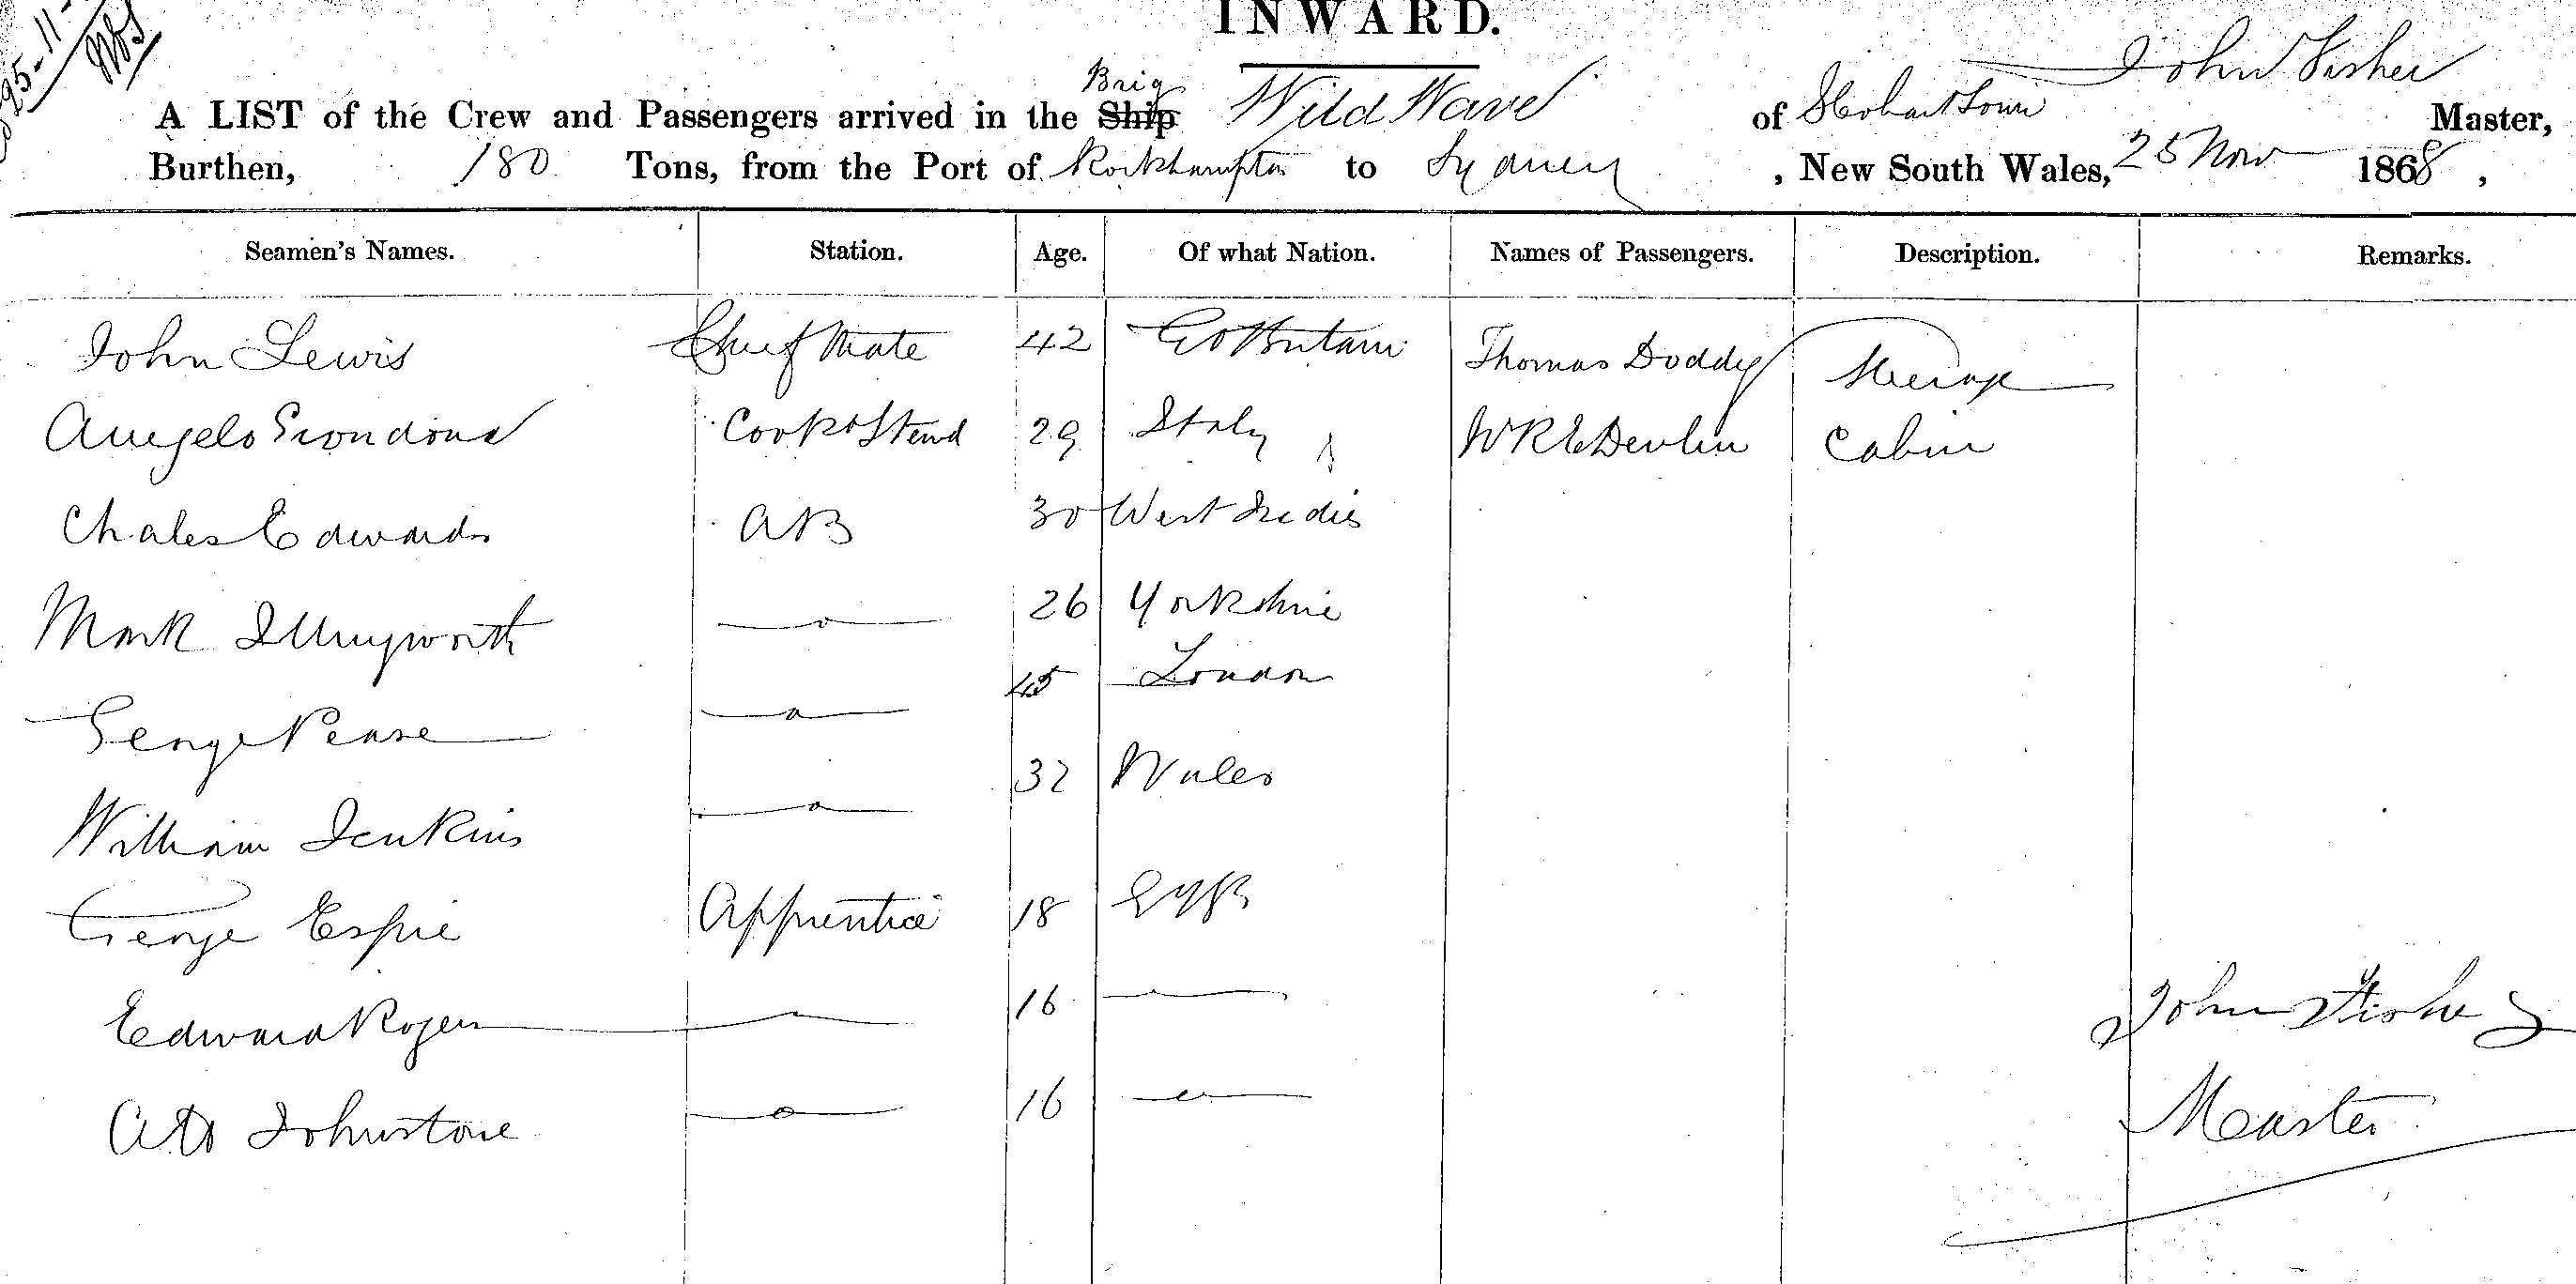 25-11-
INWARD.
Brig
John Fisher
A LIST of the Crew and Passengers arrived in the Ship Wild Wave of Hobart Town Master,
Burthen, 180 Tons, from the Port of Rockhampton to Sydney , New South Wales, 25 Nov 1868 ,
Seamen's Names. Station. Age. Of what Nation. Names of Passengers. Description. Remarks.
John Lewis Chief Mate 42 Gt Britain Thomas Doddy Steerage
Angelo Cook & Stewd 29 Italy W R E Devlin Cabin
Chales Edwards AB 30 West Indies
Mark Illingworth —o— 26 Yorkshire
George Pease —o— 45 London
William Jenkins —o— 32 Wales
George Espie Apprentice 18
Edward Rogers — 16 —
Johnstone —o— 16 —
John Fisher
Master